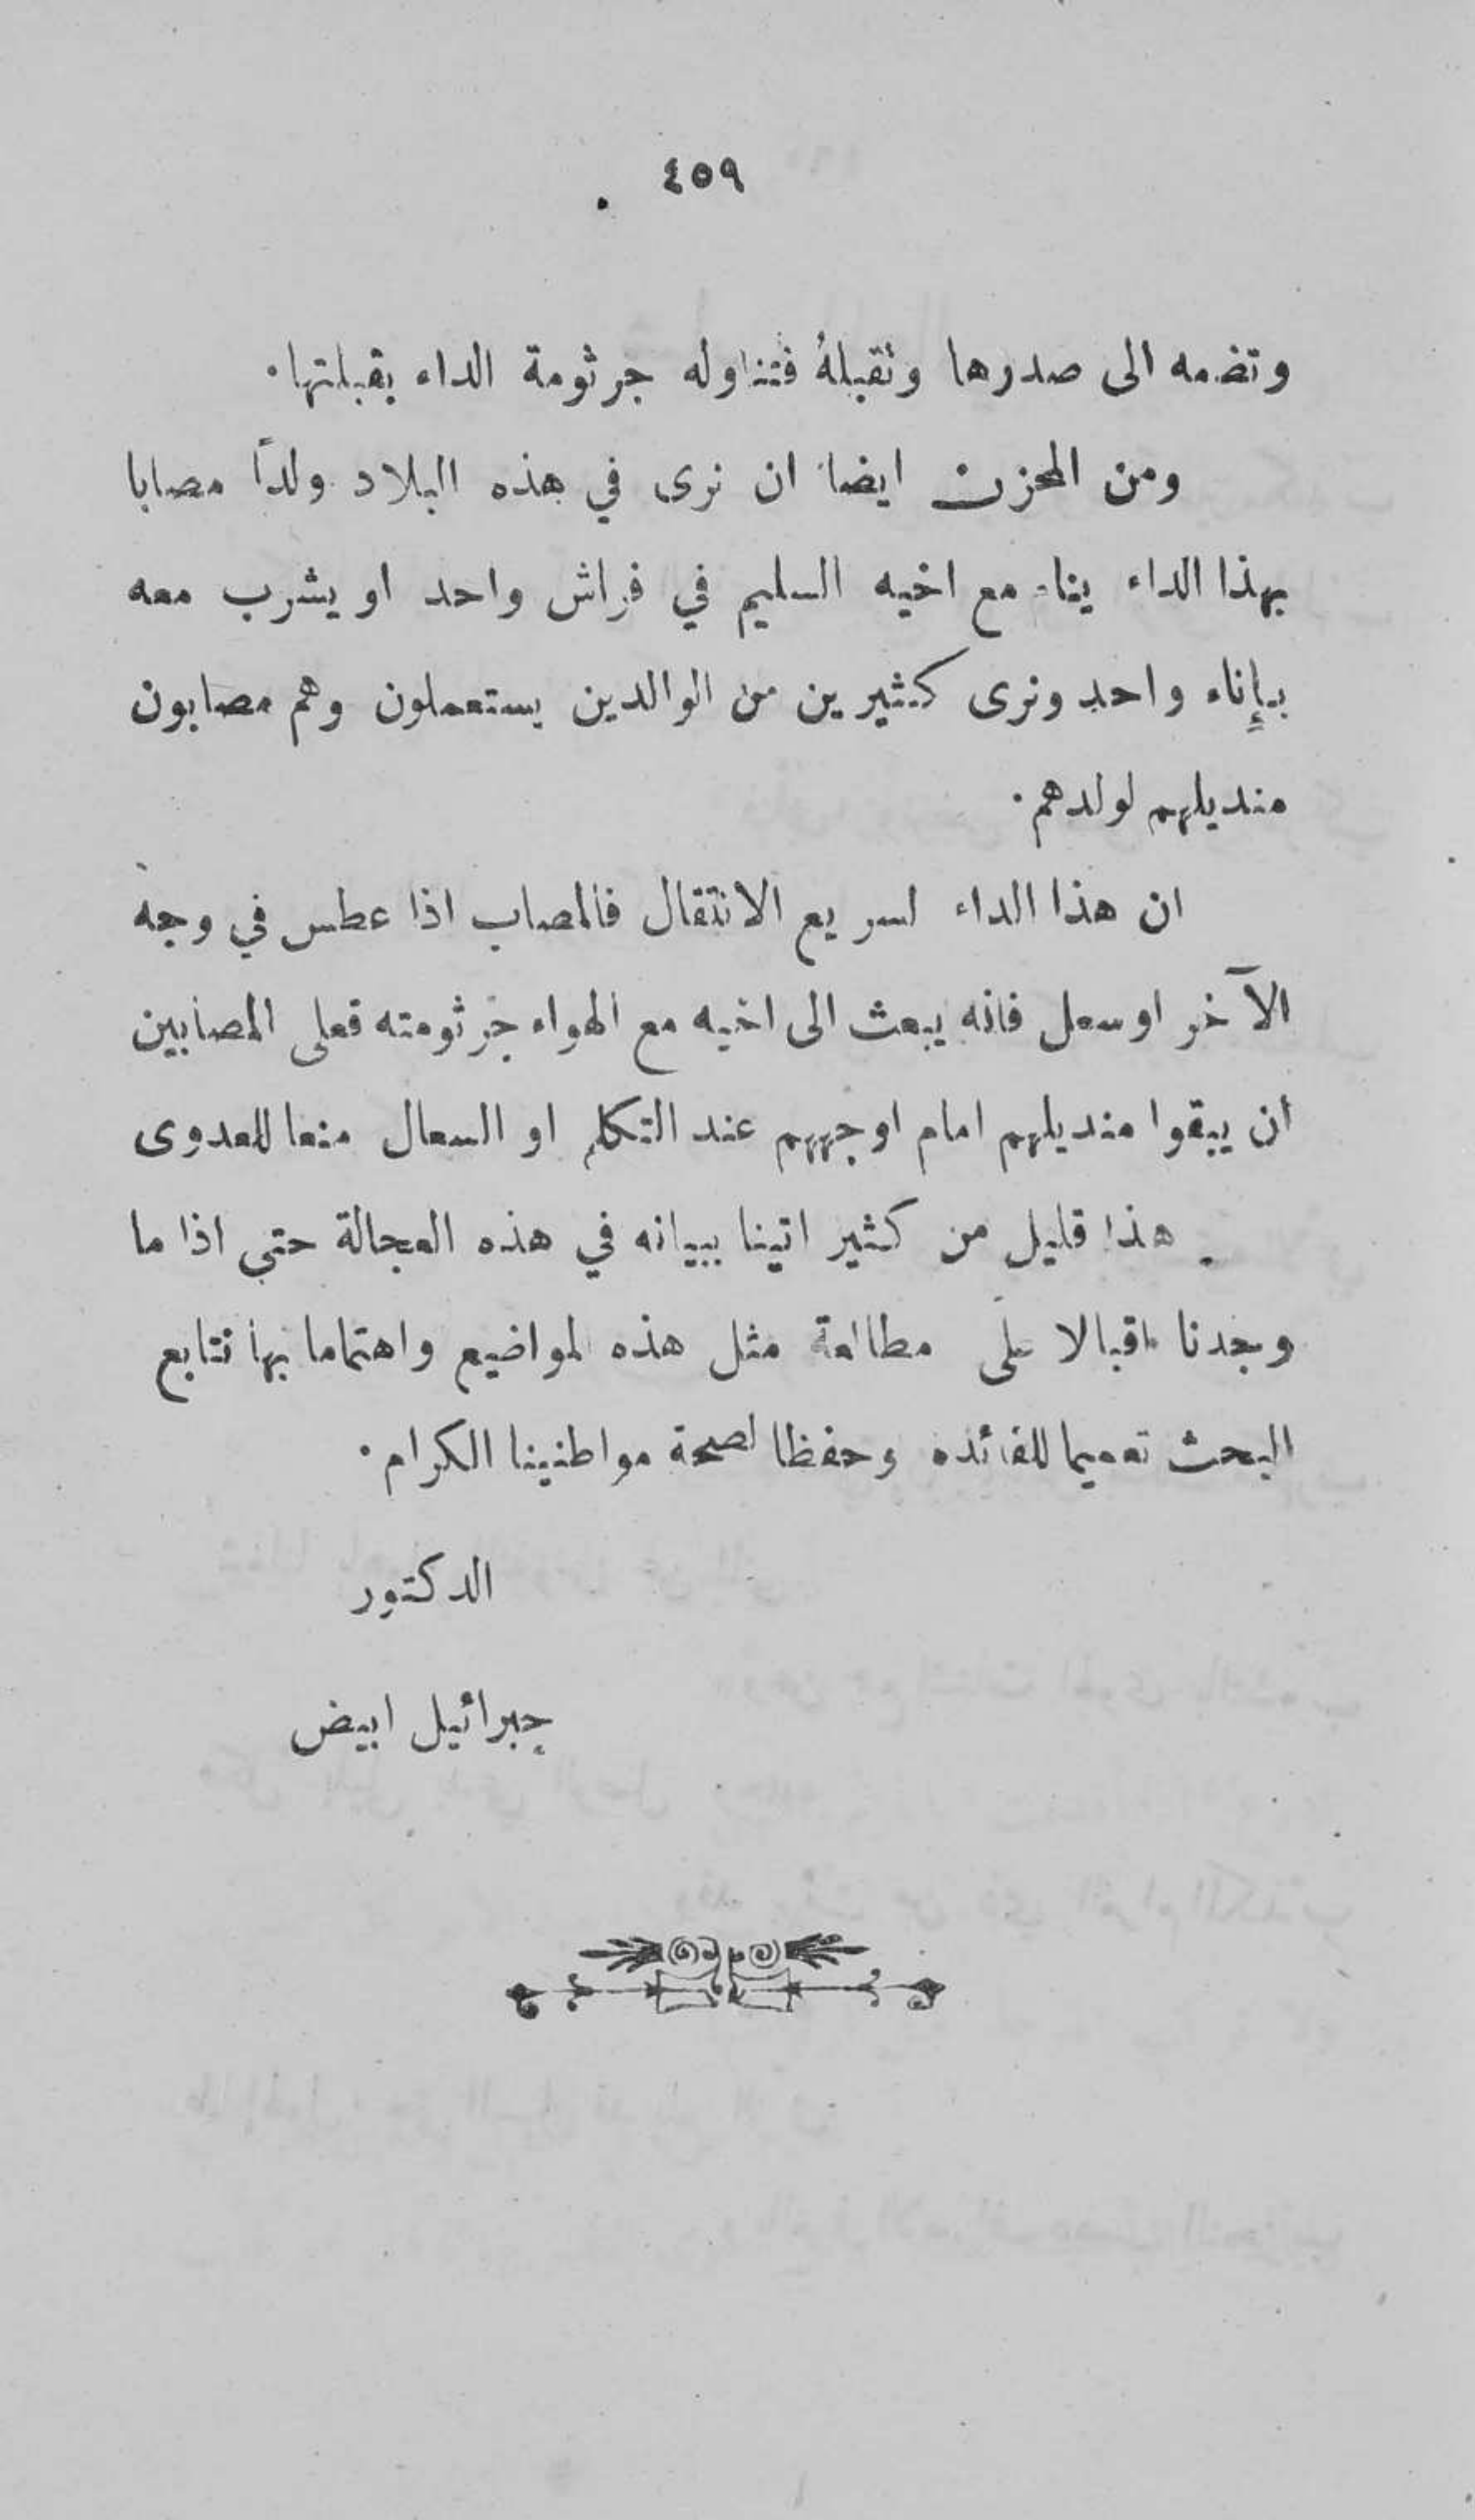 ٤٥٩
وتضمه الى صدرها وتقبلهُ فتناوله جرثومة الداء بقبلتها٠
ومن المحزن ايضا ان نرى في هذه البلاد ولداً مصابا
بهذا الداء ينام مع اخيه السليم في فراش واحد او يشرب معه
بإناء واحد ونرى كثيرين من الوالدين يستعملون وهم مصابون
منديلهم لولدهم٠
ان هذا الداء لسريع الانتقال فالمصاب اذا عطس في وجه
الآخر او سعل فانه يبعث الى اخيه مع الهواء جرثومته فعلى المصابين
ان يبقوا منديلهم امام اوجههم عند التكلم او السعال منعا للعدوى
هذا قليل من كثير اتينا ببيانه في هذه العجالة حتى اذا ما
وجدنا اقبالا على مطالعة مثل هذه المواضيع واهتماما بها نتابع
البحث تعميما للفائده وحفظا لصحة مواطنينا الكرام٠
الدكتور
جبرائيل ابيض